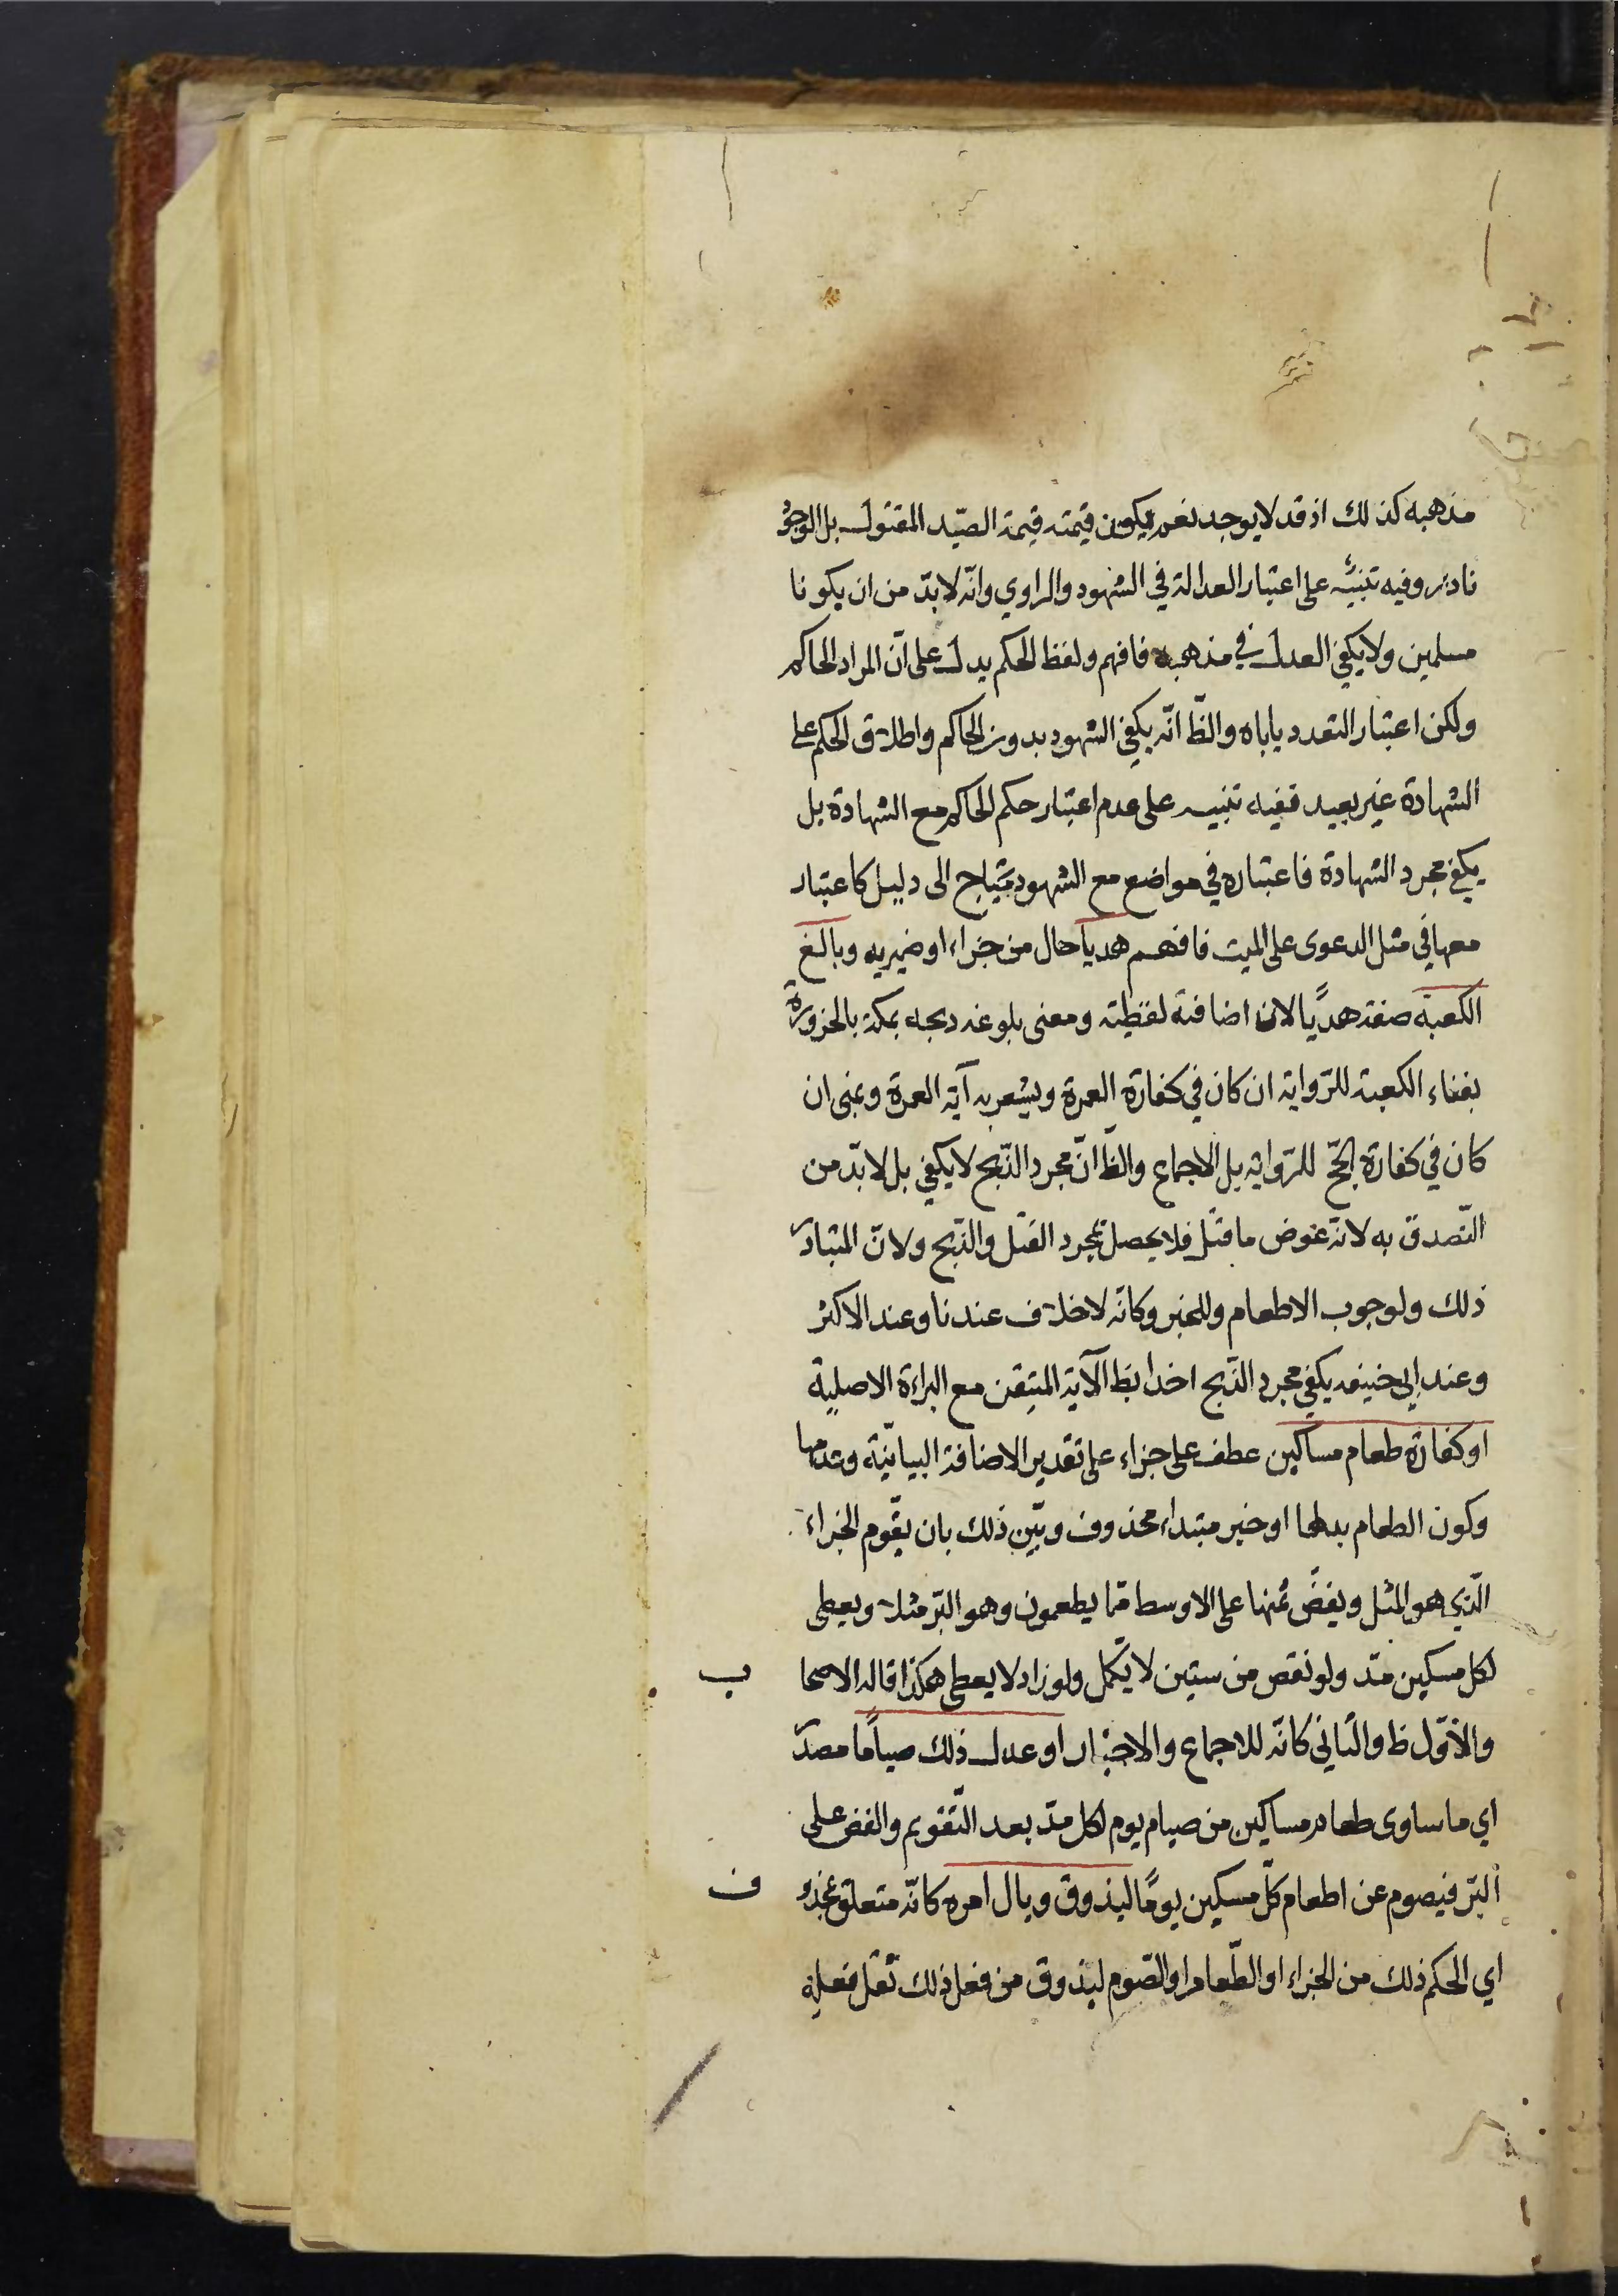 مذهبه كذلك اذ قد لا يوجد نعم يكون قيمته قيمة الصّيد المقتول بل الوجو
نادر وفيه تنبيه على اعتبار العدالة في الشهود والراوي وانّه لا بدّ من ان يكونا
مسلمين ولا يكفي العدل في مذهبه فافهم ولفظ الحكم يدل على انّ المراد الحاكم
ولكن اعتبار التعدد ياباه والظّ انّه يكفي الشهود بدون الحاكم واطلاق الحكم على
الشهادة غير بعيد ففيه تنبيه على عدم اعتبار حكم الحاكم مع الشهادة بل
يكفي مجرد الشهادة فاعتباره في مواضع مع الشهود يحتاج الى دليل كاعتبار
معها في مثل الدعوى على الميت فافهم هديا حال من جزاء او ضمير به وبالغ
الكعبة صفة هديًا لان اضافة لفظية ومعنى بلوغه ذبحه بمكة بالحزورة
بفناء الكعبة للرّواية ان كان في كفارة العمرة ويشعر به آية العمرة وبمنى ان
كان في كفارة الحجّ للرّواية بل الاجماع والظّ انّ مجرد الذّبح لا يكفي بل لا بدّ من
التّصدق به لانّه عوض ما قتل فلا يحصل بمجرد القتل والذّبح ولانّ المتبادر
ذلك ولوجوب الاطعام وللخبر وكانّه لا خلاف عندنا وعند الاكثر
وعند ابي حنيفه يكفي مجرد الذّبح اخذا بظ الآية المتيقن مع البراءة الاصلية
او كفارة طعام مساكين عطف على جزاء على تقدير الاضافة البيانيّة وعدمها
وكون الطعام بدلها او خبر مبتداء محذوف وبيّن ذلك بان يقّوم الجزاء
الّذي هو المثل ويفضّ ثمنها على الاوسط ممّا يطعمون وهو البّر مثلا ويعطى
لكل مسكين مدّ ولو نقص من ستين لا يكمّل ولو زاد لا يعطى هكذا قاله الاصحا ب
والاوّل ظ والثاني كانّه للاجماع والاخبار او عدل ذلك صياما مصدر
اي ما ساوى طعام مساكين من صيام يوم لكل مدّ بعد التّقويم والفض على
البّر فيصوم عن اطعام كلّ مسكين يومًا ليذوق وبال امره كانّه متعلق بمحذو ف
اي الحكم ذلك من الجزاء او الطّعام او الصّوم ليذوق من فعل ذلك ثقل فعله